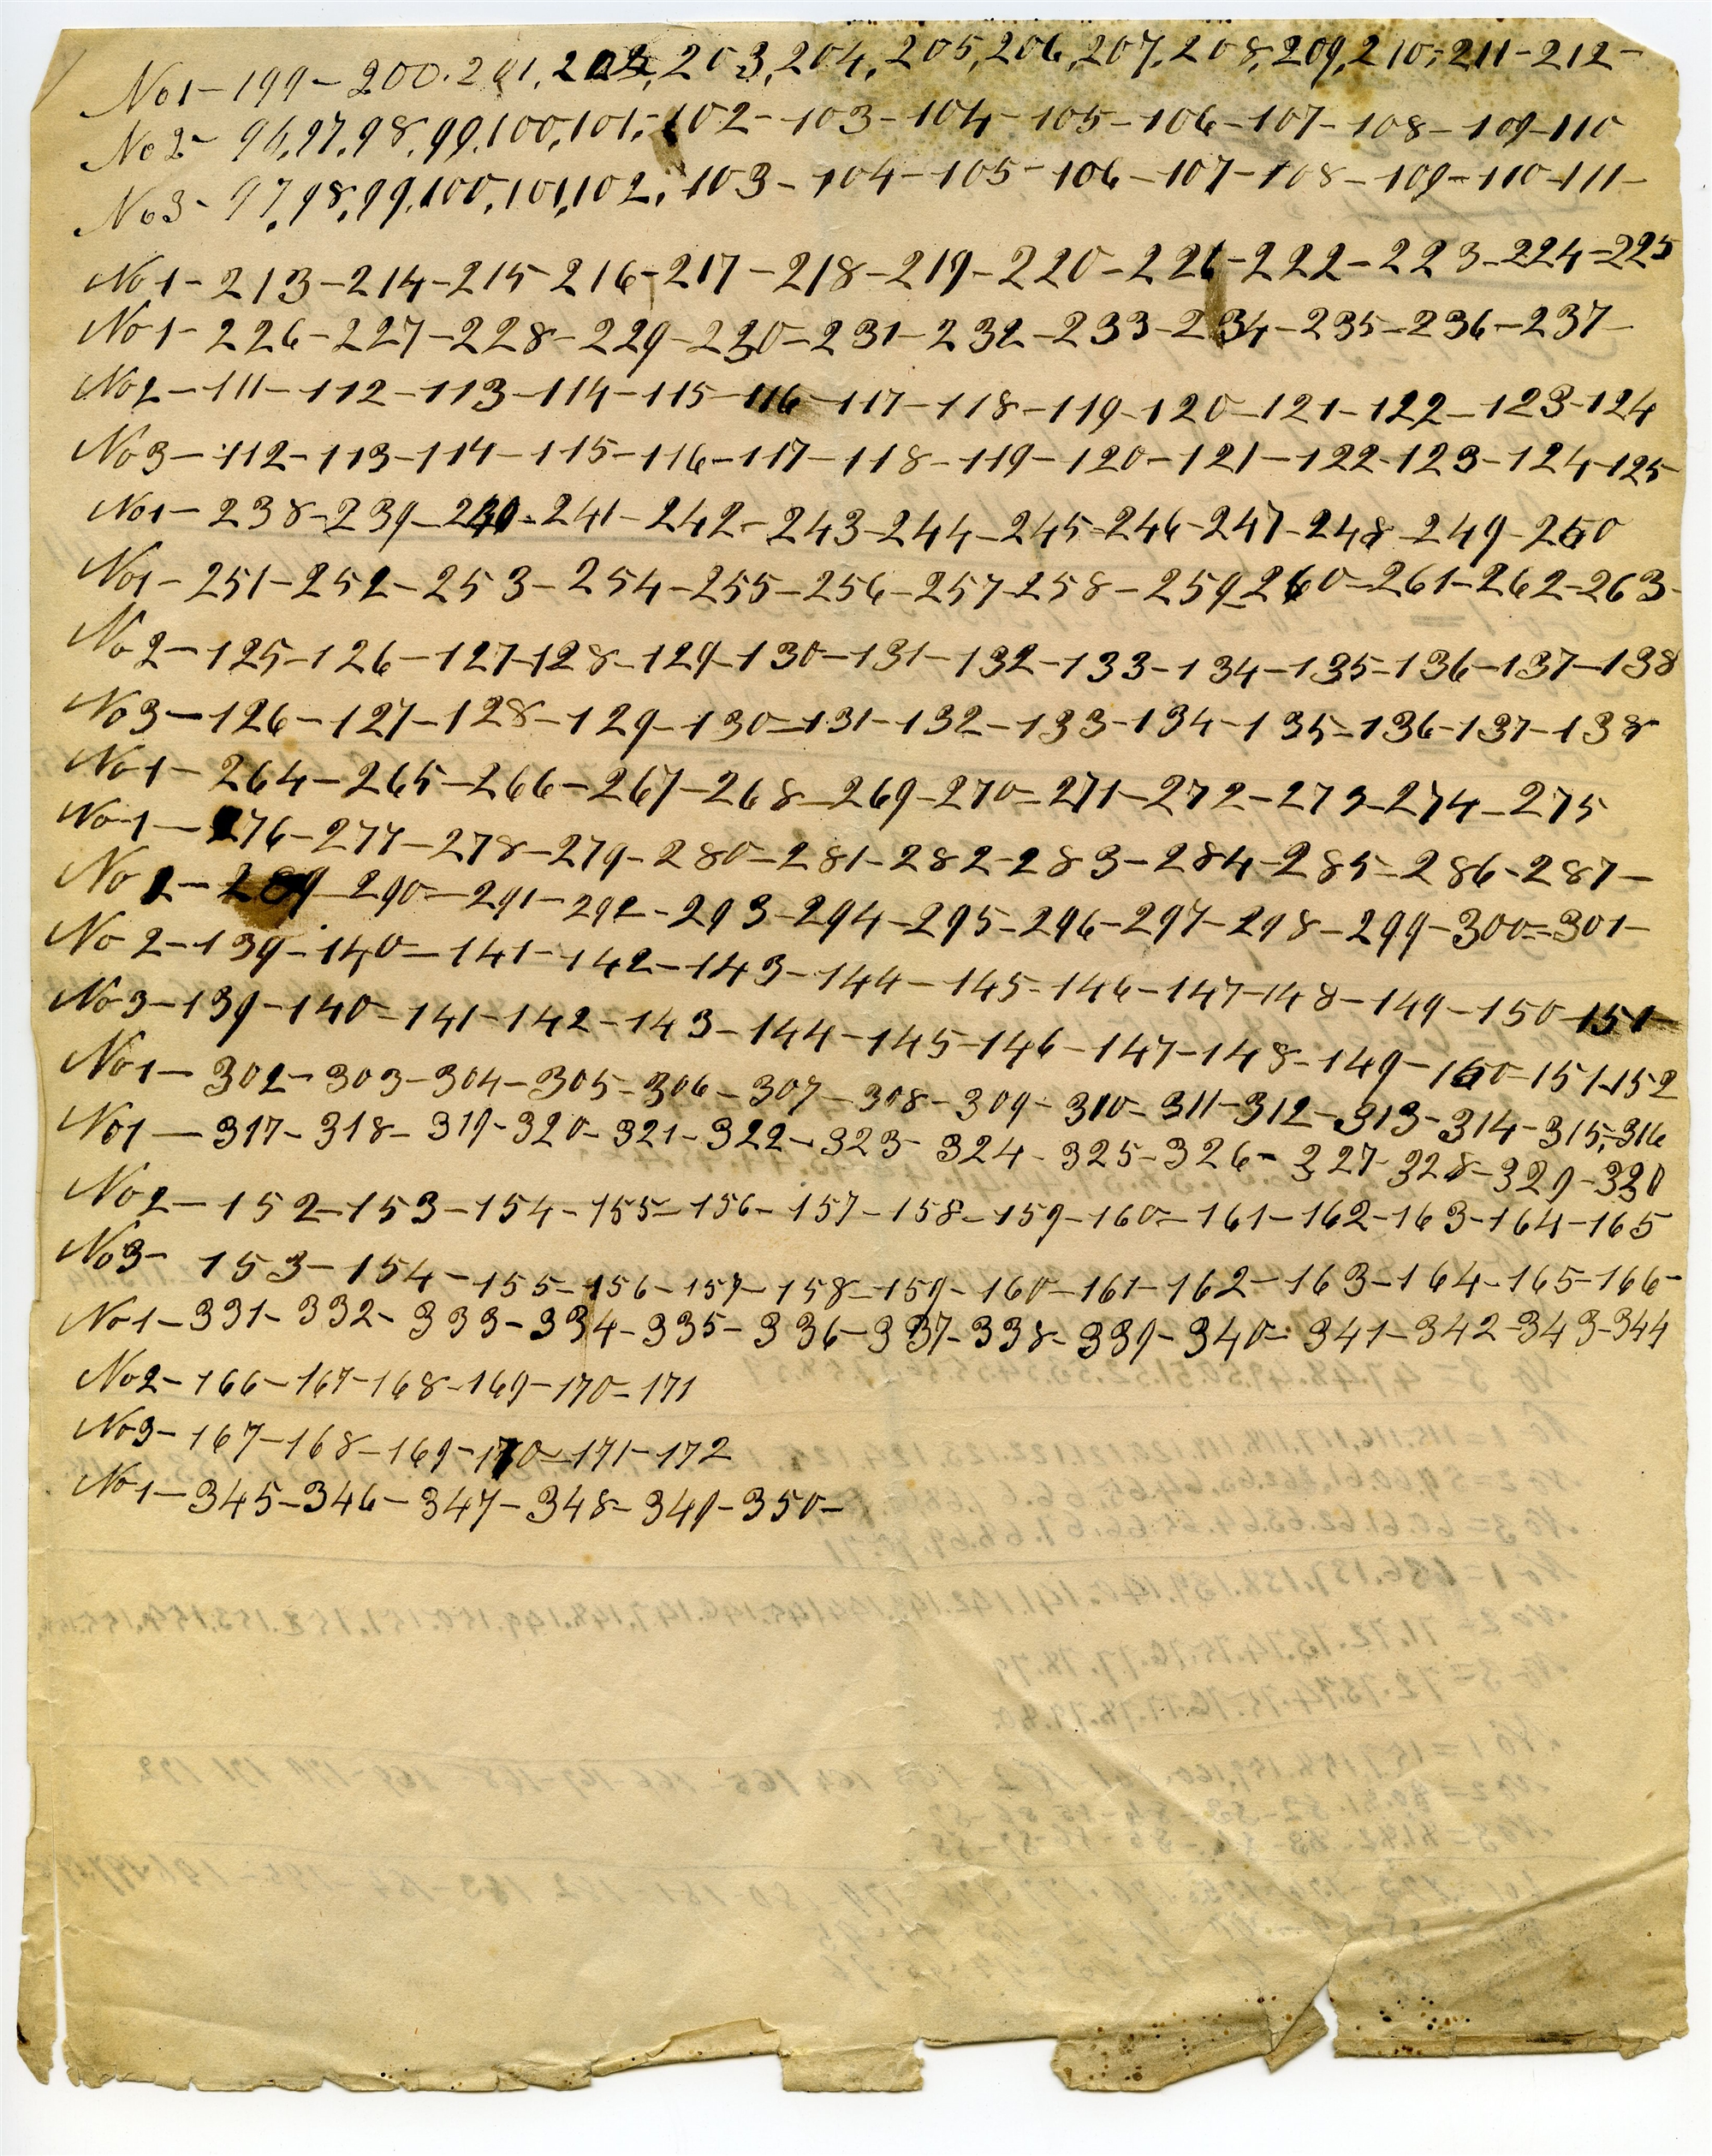 No 1 - 199 - 200. 201, 202, 203, 204, 205, 206, 207, 208, 209, 210, - 211 - 212 -
No 2 - 96, 97, 98, 99, 100, 101, - 102 - 103 - 104 - 105 - 106 - 107 - 108 - 109 - 110
No 3 - 97, 98, 99, 100, 101, 102, 103 - 104 - 105 - 106 - 107 - 108 - 109 - 110 - 111 -
No 1 - 213 - 214 - 215 - 216 - 217 - 218 - 219 - 220 - 221 - 222 - 223 - 224 - 225
No 1 - 226 - 227 - 228 - 229 - 230 - 231 - 232 - 233 - 234 - 235 - 236 - 237 -
No 2 - 111 - 112 - 113 - 114 - 115 - 116 - 117 - 118 - 119 - 120 - 121 - 122 - 123 - 124
No 3 - 112 - 113 - 114 - 115 - 116 - 117 - 118 - 119 - 120 - 121 - 122 - 123 - 124 - 125
No 1 - 238 - 239 - 240 - 241 - 242 - 243 - 244 - 245 - 246 - 247 - 248 - 249 - 250
No 1 - 251 - 252 - 253 - 254 - 255 - 256 - 257 - 258 - 259 - 260 - 261 - 262 - 263 -
No 2 - 125 - 126 - 127 - 128 - 129 - 130 - 131 - 132 - 133 - 134 - 135 - 136 - 137 - 138
No 3 - 126 - 127 - 128 - 129 - 130 - 131 - 132 - 133 - 134 - 135 - 136 - 137 - 138
No 1 - 264 - 265 - 266 - 267 - 268 - 269 - 270 - 271 - 272 - 273 - 274 - 275
No 1 - 276 - 277 - 278 - 279 - 280 - 281 - 282 - 283 - 284 - 285 - 286 - 287 -
No 1 - 289 - 290 - 291 - 292 - 293 - 294 - 295 - 296 - 297 - 298 - 299 - 300 - 301 -
No 2 - 139 - 140 - 141 - 142 - 143 - 144 - 145 - 146 - 147 - 148 - 149 - 150 - 151 -
No 3 - 139 - 140 - 141 - 142 - 143 - 144 - 145 - 146 - 147 - 148 - 149 - 150 - 151 - 152
No 1 - 302 - 303 - 304 - 305 - 306 - 307 - 308 - 309 - 310 - 311 - 312 - 313 - 314 - 315 - 316
No 1 - 317 - 318 - 319 - 320 - 321 - 322 - 323 - 324 - 325 - 326 - 327 - 328 - 329 - 330
No 2 - 152 - 153 - 154 - 155 - 156 - 157 - 158 - 159 - 160 - 161 - 162 - 163 - 164 - 165
No 3 - 153 - 154 - 155 - 156 - 157 - 158 - 159 - 160 - 161 - 162 - 163 - 164 - 165 - 166 -
No 1 - 331 - 332 - 333 - 334 - 335 - 336 - 337 - 338 - 339 - 340 - 341 - 342 - 343 - 344
No 2 - 166 - 167 - 168 - 169 - 170 - 171
No 3 - 167 - 168 - 169 - 170 - 171 - 172
No 1 - 345 - 346 - 347 - 348 - 349 - 350 -